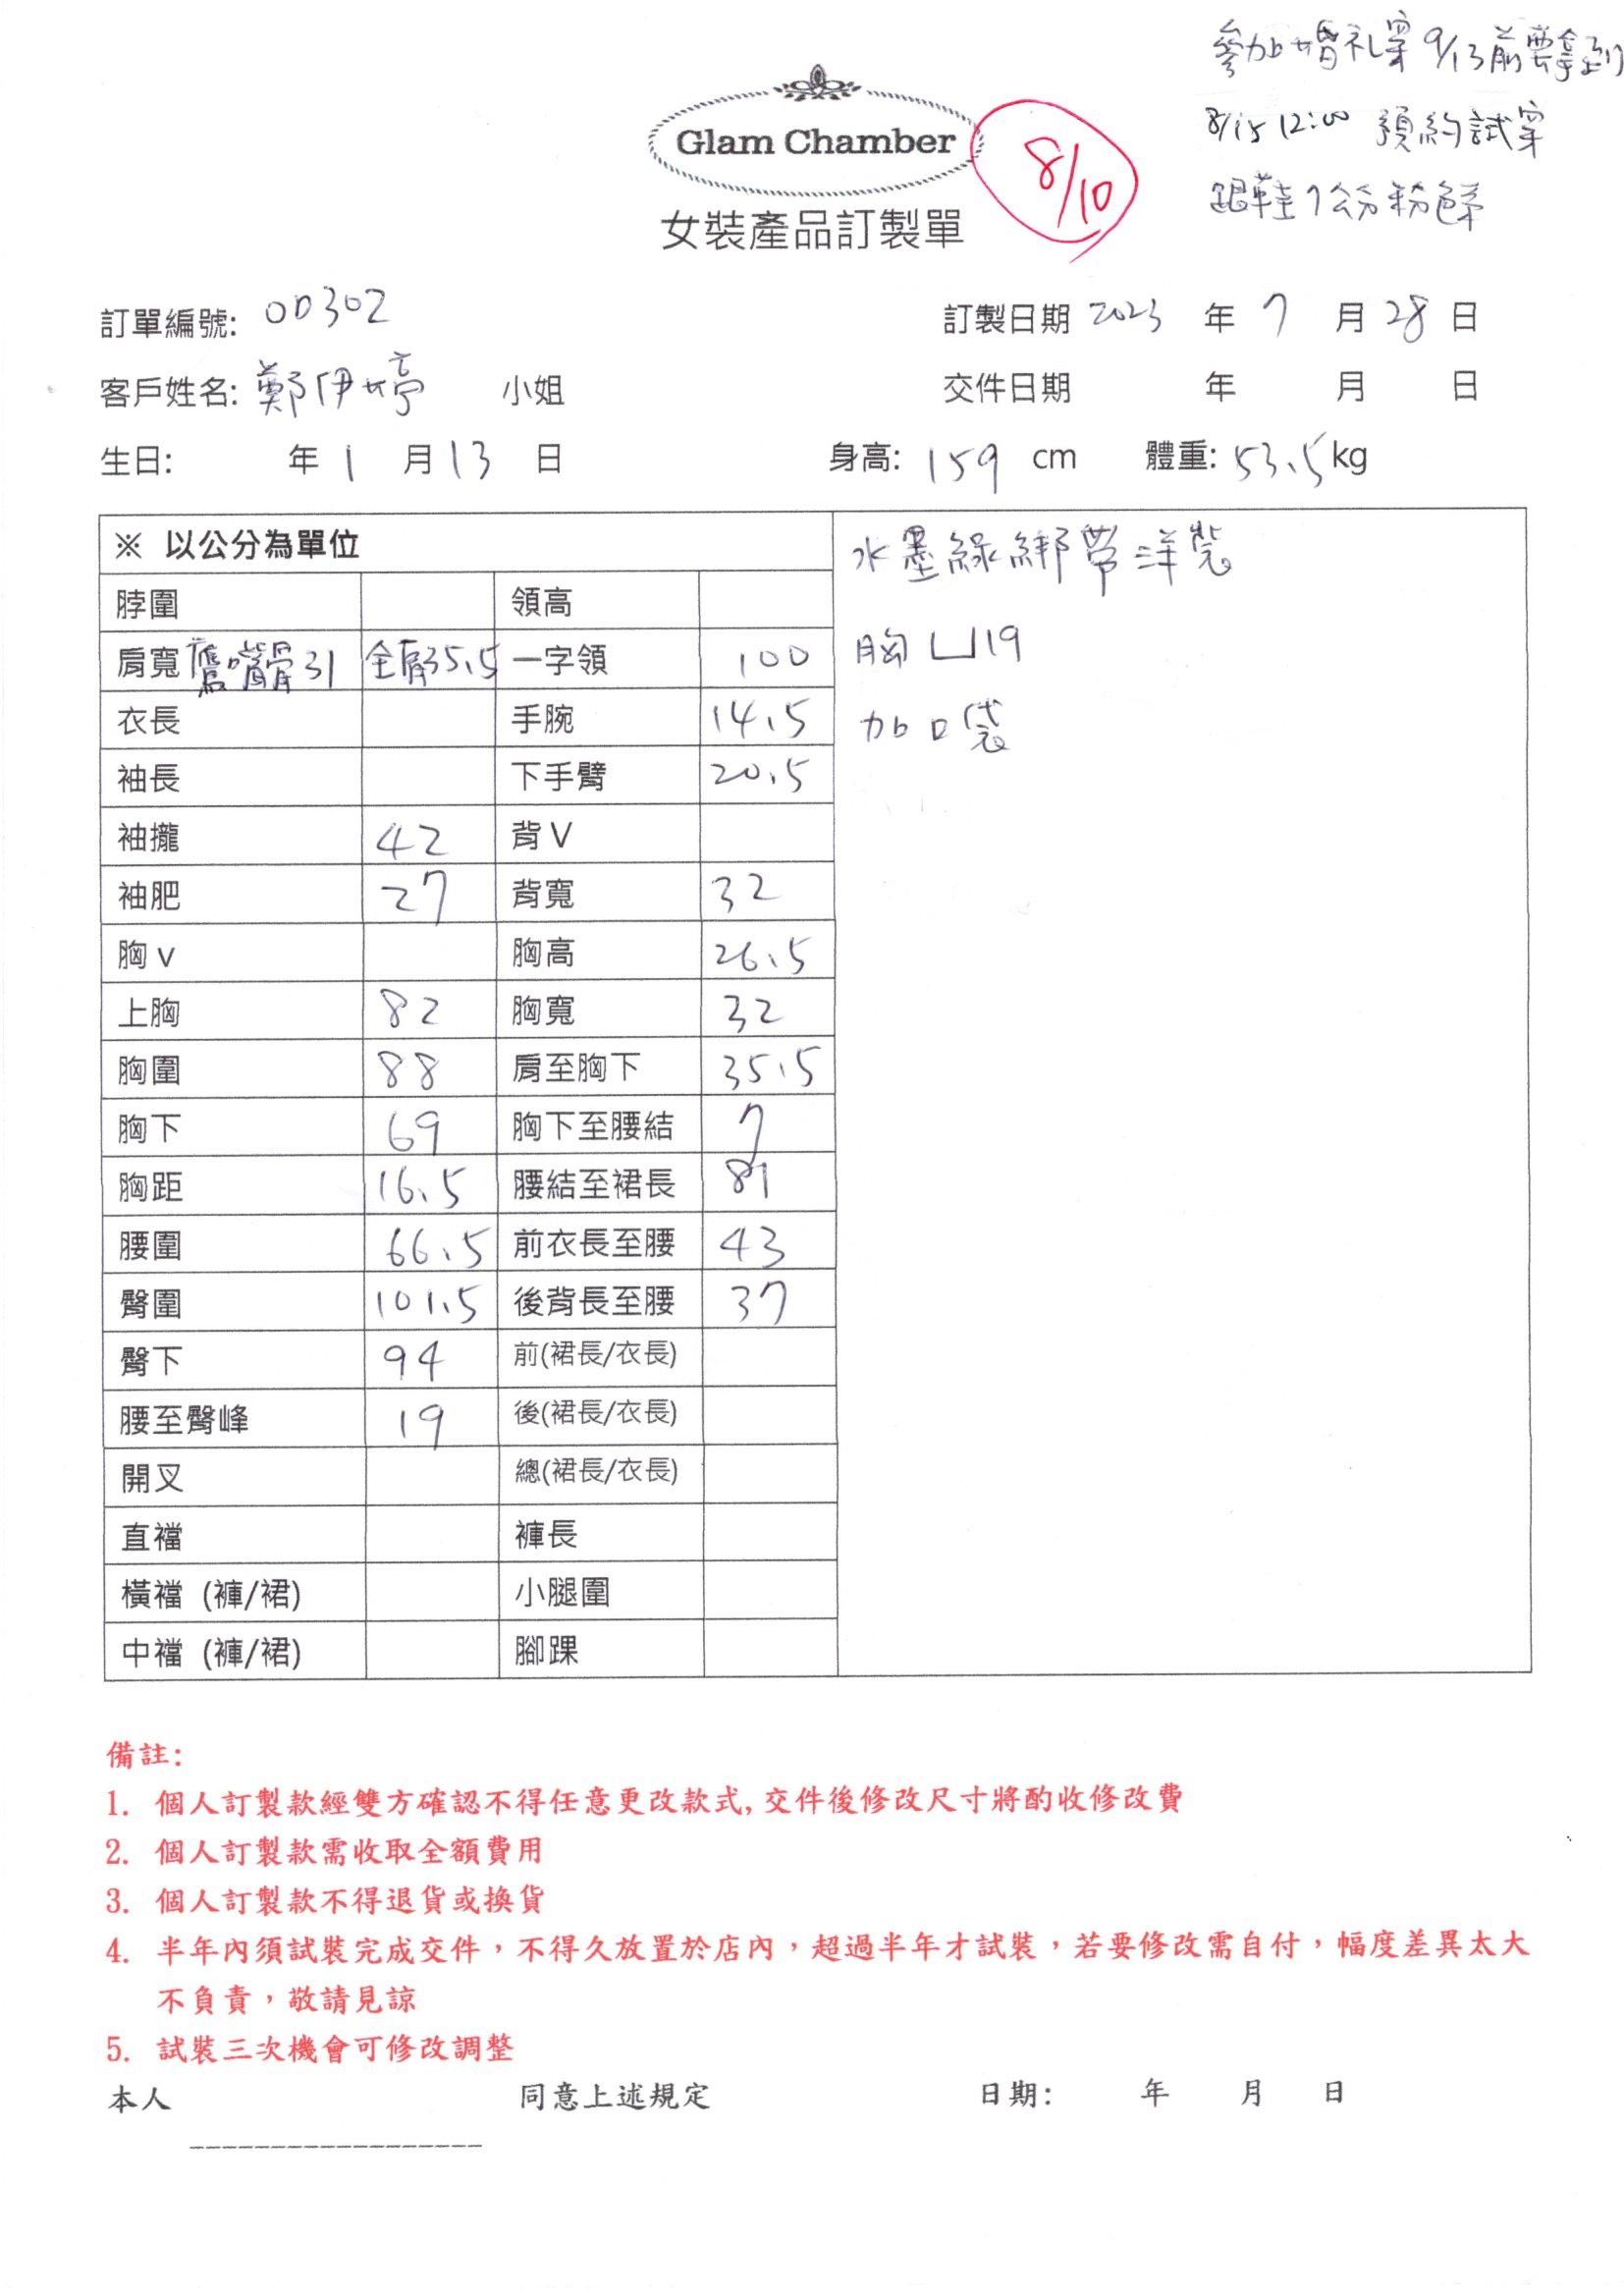 參加婚礼穿 9/13前要拿到
8/15 12:00 預約試穿
跟鞋7公分粉色系
Glam Chamber
8/10
女裝產品訂製單
訂單編號: OD302
訂製日期 2023 年 7 月 28 日
客戶姓名: 鄭伊婷 小姐
交件日期 年 月 日
生日: 年 1 月 13 日 身高: 159 cm 體重: 53.5 kg
※ 以公分為單位
水墨綠綁帶洋裝
脖圍 領高
肩寬 鷹嘴骨31 全肩35.5 一字領 100
胸凵19
衣長 手腕 14.5
加口袋
袖長 下手臂 20.5
袖攏 42 背V
袖肥 27 背寬 32
胸v 胸高 26.5
上胸 82 胸寬 32
胸圍 88 肩至胸下 35.5
胸下 69 胸下至腰結 7
胸距 16.5 腰結至裙長 81
腰圍 66.5 前衣長至腰 43
臀圍 101.5 後背長至腰 37
臀下 94 前(裙長/衣長)
腰至臀峰 19 後(裙長/衣長)
開叉 總(裙長/衣長)
直襠 褲長
橫襠 (褲/裙) 小腿圍
中襠 (褲/裙) 腳踝
備註:
1. 個人訂製款經雙方確認不得任意更改款式, 交件後修改尺寸將酌收修改費
2. 個人訂製款需收取全額費用
3. 個人訂製款不得退貨或換貨
4. 半年內須試裝完成交件，不得久放置於店內，超過半年才試裝，若要修改需自付，幅度差異太大
不負責，敬請見諒
5. 試裝三次機會可修改調整
本人 同意上述規定 日期: 年 月 日